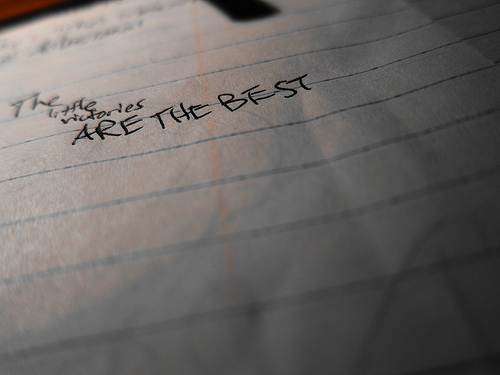 The little
victories
ARE THE BEST